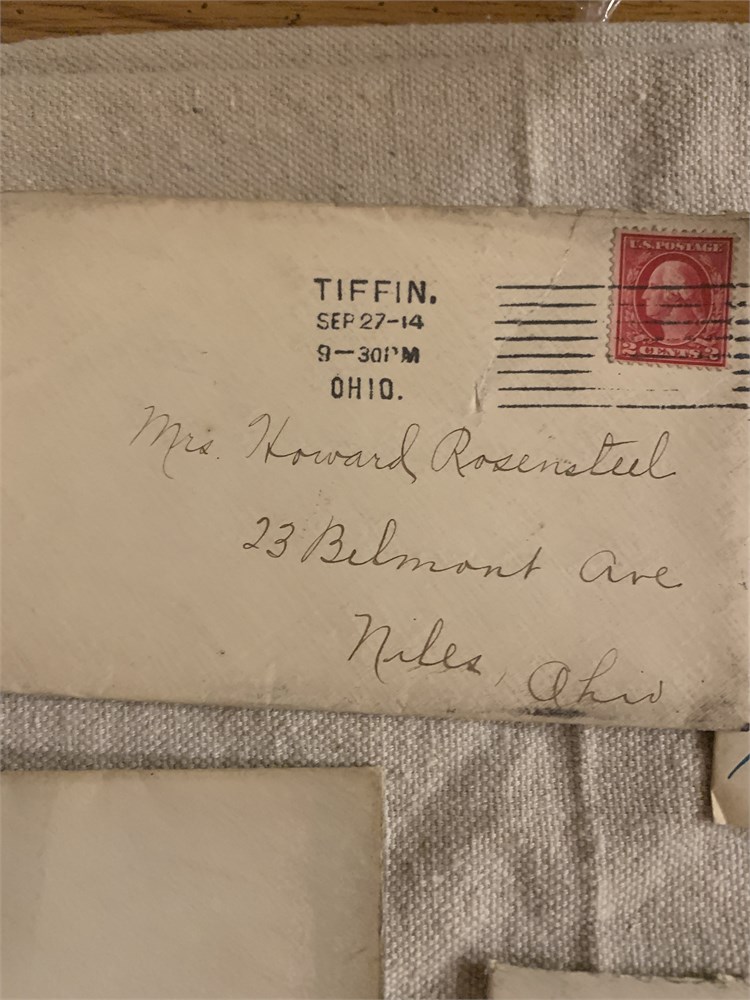 U.S. POSTAGE
2 CENTS 2
TIFFIN.
SEP 27-14
9-30PM
OHIO.
Mrs. Howard Rosensteel
23 Belmont Ave
Niles, Ohio